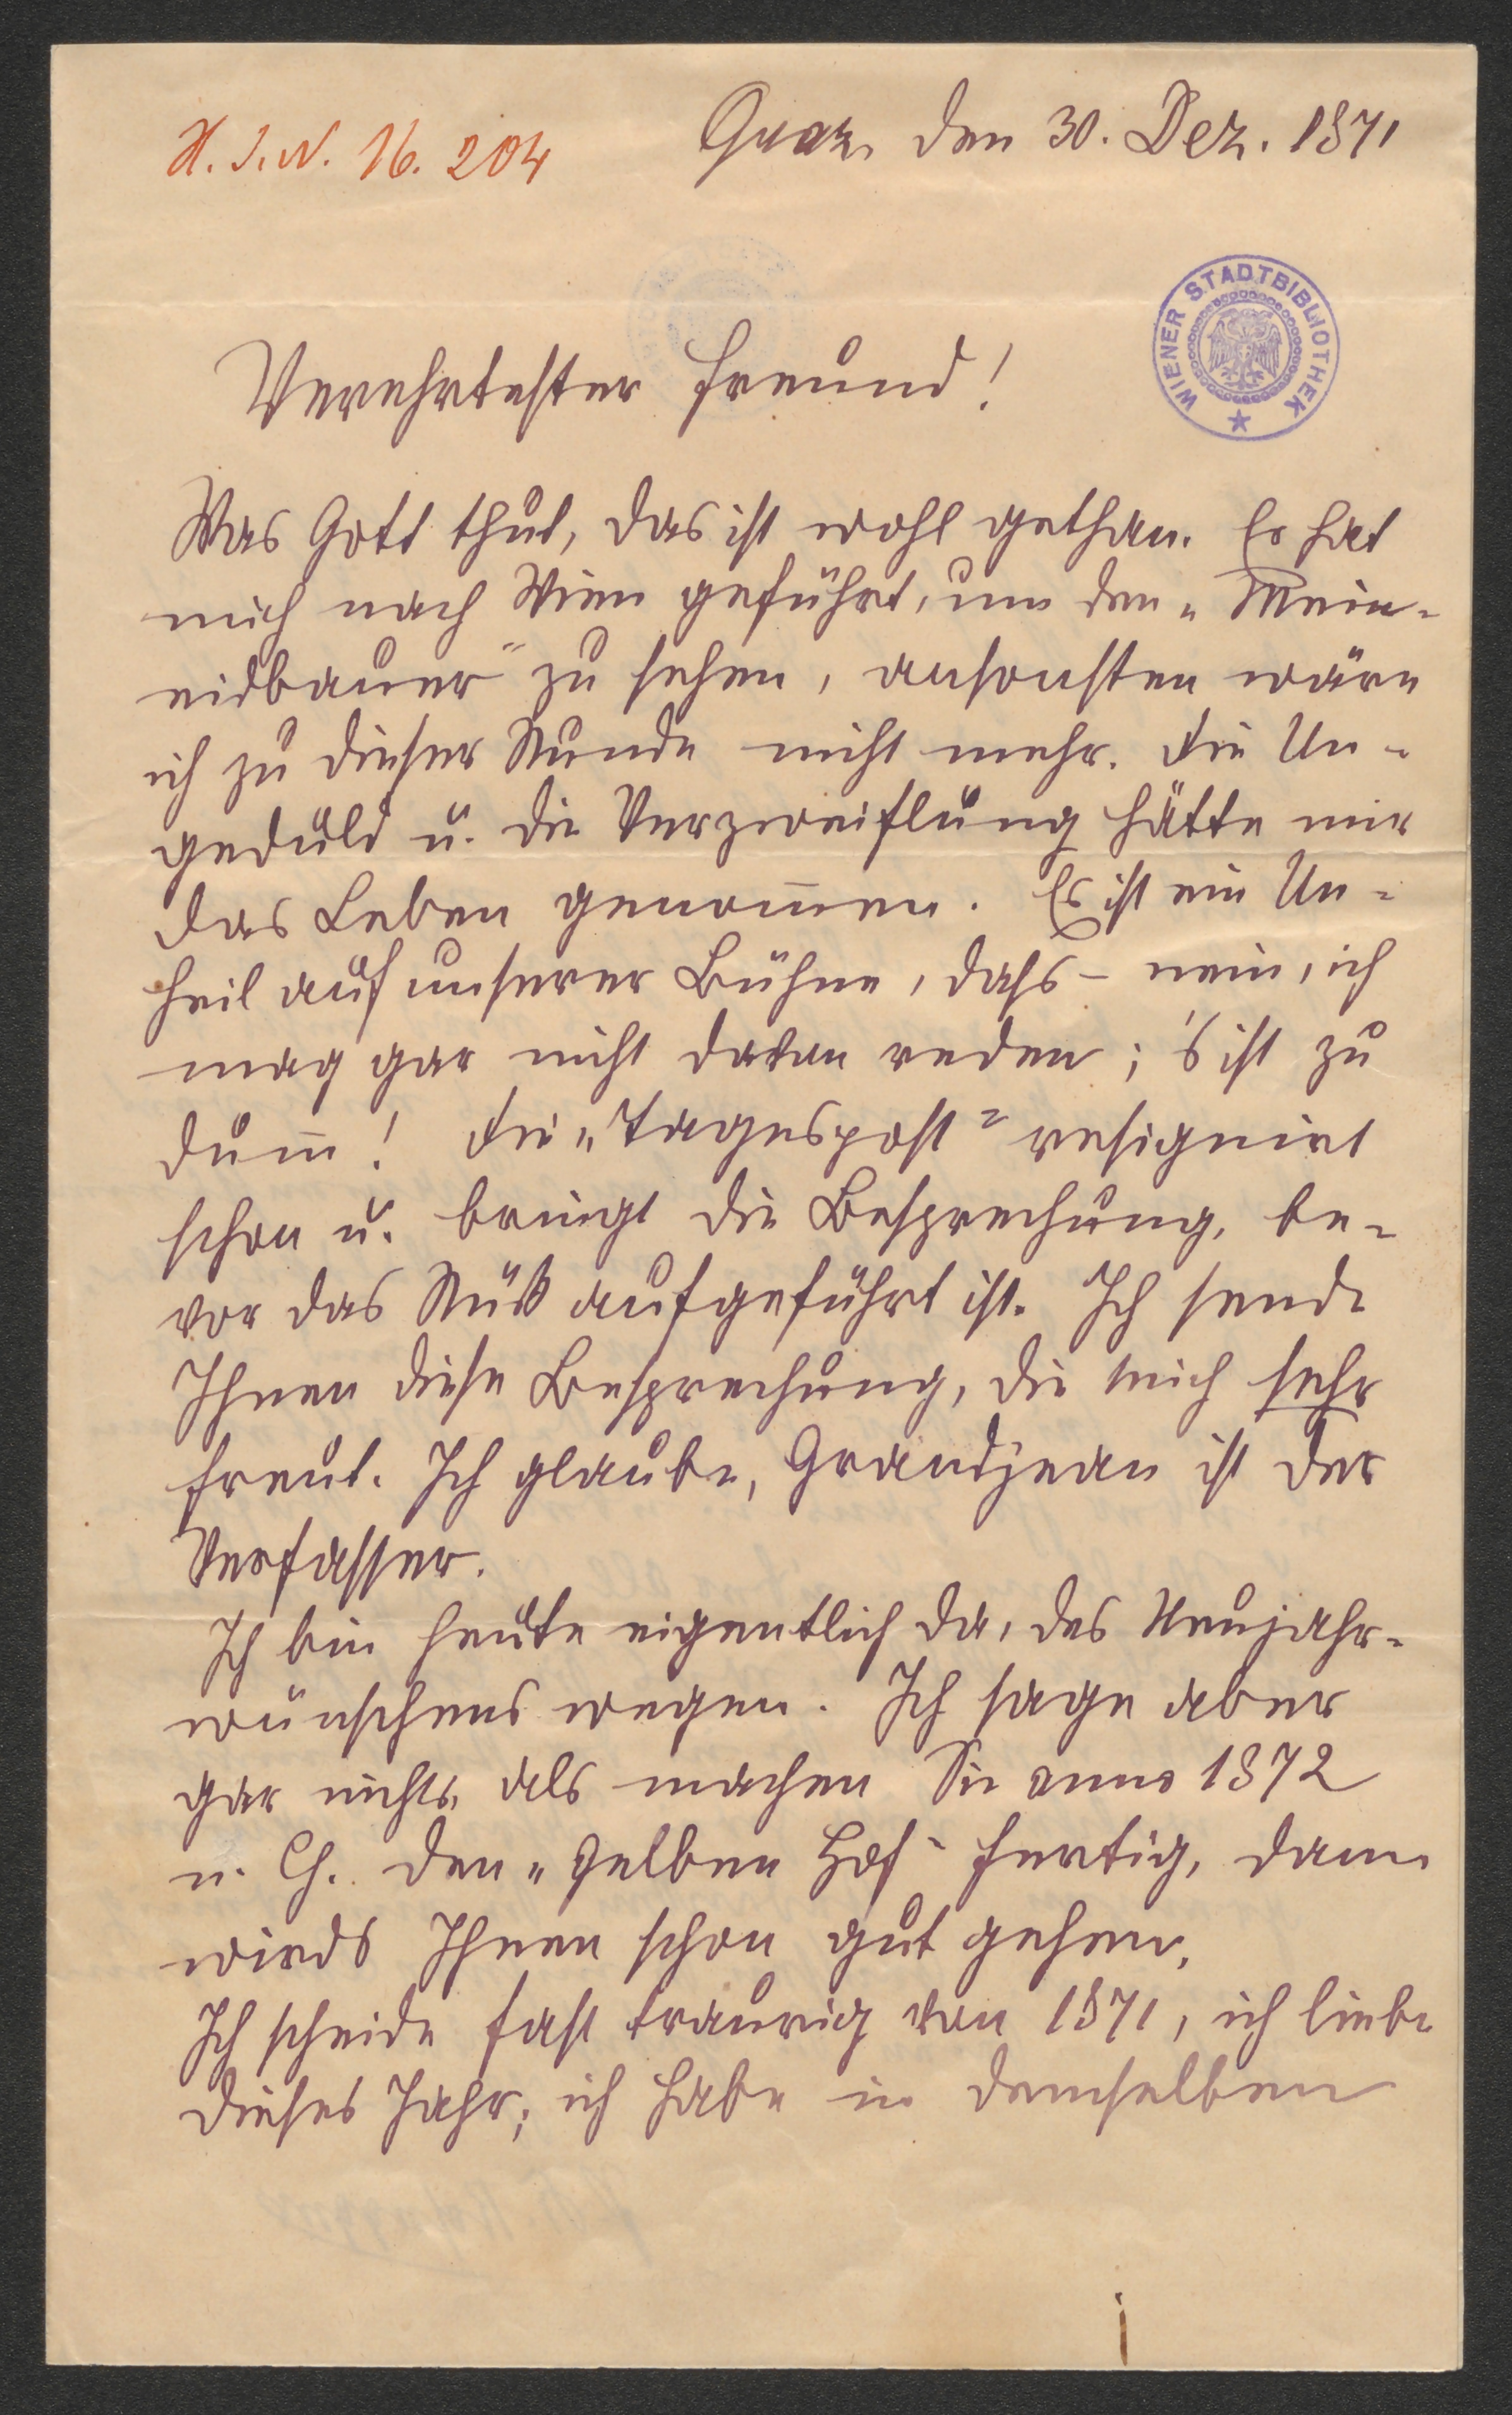 H. I. N. 16. 204
Graz, den 30. Dez. 1871
WIENER STADTBIBLIOTHEK
Verehrtester Freund!
Was Gott thut, das ist wohl gethan. Er hat
mich nach Wien geführt, um den „Mein-
eidbauer" zu sehen, ansonsten wäre
ich zu dieser Stunde nicht mehr. Die Un-
geduld u. die Verzweiflung hätte mir
das Leben genom̅en. Es ist ein Un-
heil auf unserer Bühne, dass – nein, ich
mag gar nicht davon reden; 's ist zu
dum̅! Die „Tagespost" resignirt
schon u. bringt die Besprechung, be-
vor das Stück aufgeführt ist. Ich sende
Ihnen diese Besprechung, die mich sehr
freut. Ich glaube, Grandjean ist der
Verfasser.
Ich bin heute eigentlich da, des Neujahr-
wünschens wegen. Ich sage aber
gar nichts, als machen Sie anno 1872
n. Ch. den „gelben Hof" fertig, dann
wirds Ihnen schon gut gehen.
Ich scheide fast traurig von 1871, ich liebe
dieses Jahr; ich habe in demselben